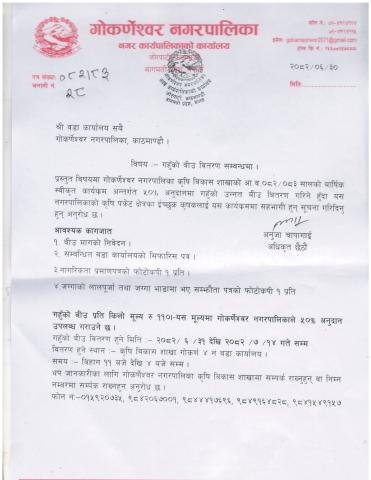 गोकर्णेश्वर नगरपालिका
नगर कार्यपालिकाको कार्यालय
जोरपाटी
बागमती
फोन नं.:
इमेल: gokarneswor2071@gmail.com
पत्र संख्या: ०८२।८३
चलानी नं. २८
२०८२/०६/३०
मिति:
श्री वडा कार्यालय सबै
गोकर्णेश्वर नगरपालिका, काठमाण्डौ ।
विषय :– गहुँको बीउ वितरण सम्बन्धमा ।
प्रस्तुत विषयमा गोकर्णेश्वर नगरपालिका कृषि विकास शाखाको आ व ०८२/०८३ सालको वार्षिक
स्वीकृत कार्यक्रम अन्तर्गत ५०% अनुदानमा गहुँको उन्नत बीउ वितरण गरिने हुँदा यस
नगरपालिकाको कृषि पकेट क्षेत्रका ईच्छुक कृषकलाई यस कार्यक्रममा सहभागी हुन सूचना गरिदिनु
हुन अनुरोध छ ।
आवश्यक कागजात
अनुजा चापागाई
१. बीउ मागको निवेदन ।
अधिकृत छैठौं
२. सम्बन्धित वडा कार्यालयको सिफारिस पत्र ।
३ नागरिकता प्रमाणपत्रको फोटोकपी १ प्रति ।
४ जग्गाको लालपूर्जा तथा जग्गा भाडामा भए सम्झौता पत्रको फोटोकपी १ प्रति
गहुँको बीउ प्रति किलो मूल्य रु ११०।-यस मूल्यमा गोकर्णेश्वर नगरपालिकाले ५०% अनुदान
उपलब्ध गराउने छ ।
गहुँको बीउ वितरण हुने मिति :- २०८२/ ६ /३१ देखि २०८२ /७ /१४ गते सम्म
वितरण हुने स्थान :– कृषि विकास शाखा गोकर्ण ४ नं वडा कार्यालय ।
समय :– बिहान ११ बजे देखि ४ बजे सम्म ।
थप जानकारीका लागि गोकर्णेश्वर नगरपालिका कृषि विकास शाखामा सम्पर्क राख्नुहुन वा निम्न
नम्बरमा सम्पर्क राख्नहुन अनुरोध छ ।
फोन नं:–०१५९२०७३५, ९८४२०६७००१, ९८४४४१७६९६, ९८४९१६४८२८, ९८४१५४९१५७